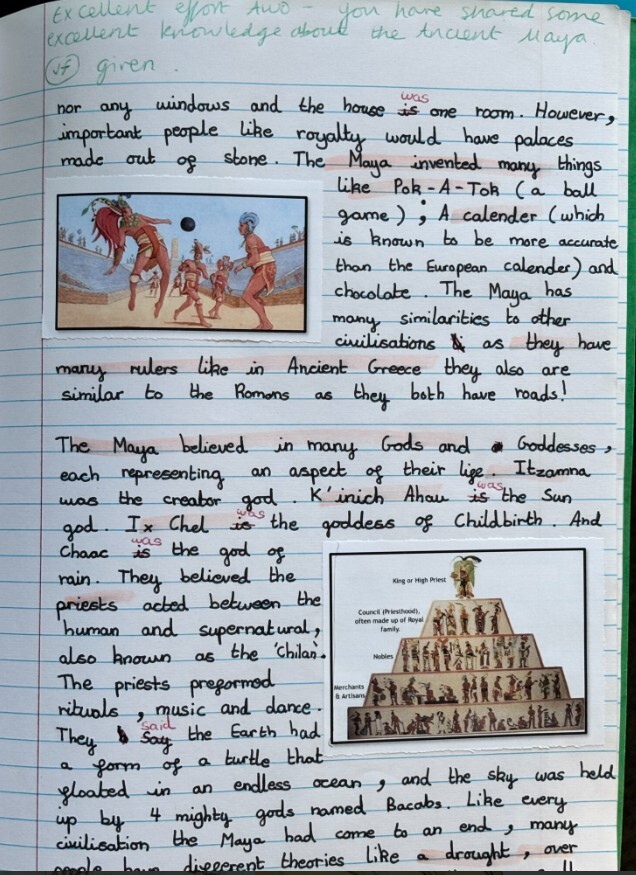 Excellent effort Awo - you have shared some
excellent knowledge about the Ancient Maya.
vf given.
nor any windows and the house is was one room. However,
important people like royalty would have palaces
made out of stone. The Maya invented many things
like Pok-A-Tok (a ball
game); A calender (which
is known to be more accurate
than the European calender) and
chocolate. The Maya has
many similarities to other
civilisations as they have
many rulers like in Ancient Greece they also are
similar to the Romons as they both have roads!
The Maya believed in many Gods and Goddesses,
each representing an aspect of their life. Itzamna
was the creator god. K'inich Ahau is was the Sun
god. Ix Chel is was the goddess of Childbirth. And
Chaac is was the god of
rain. They believed the
priests acted between the
human and supernatural,
also known as the 'Chilan'.
The priests preformed
rituals, music and dance.
They Say said the Earth had
a form of a turtle that
floated in an endless ocean, and the sky was held
up by 4 mighty gods named Bacabs. Like every
civilisation the Maya had come to an end, many
people have different theories like a drought, over
King or High Priest
Council (Priesthood),
often made up of Royal
family.
Nobles
Merchants
& Artisans